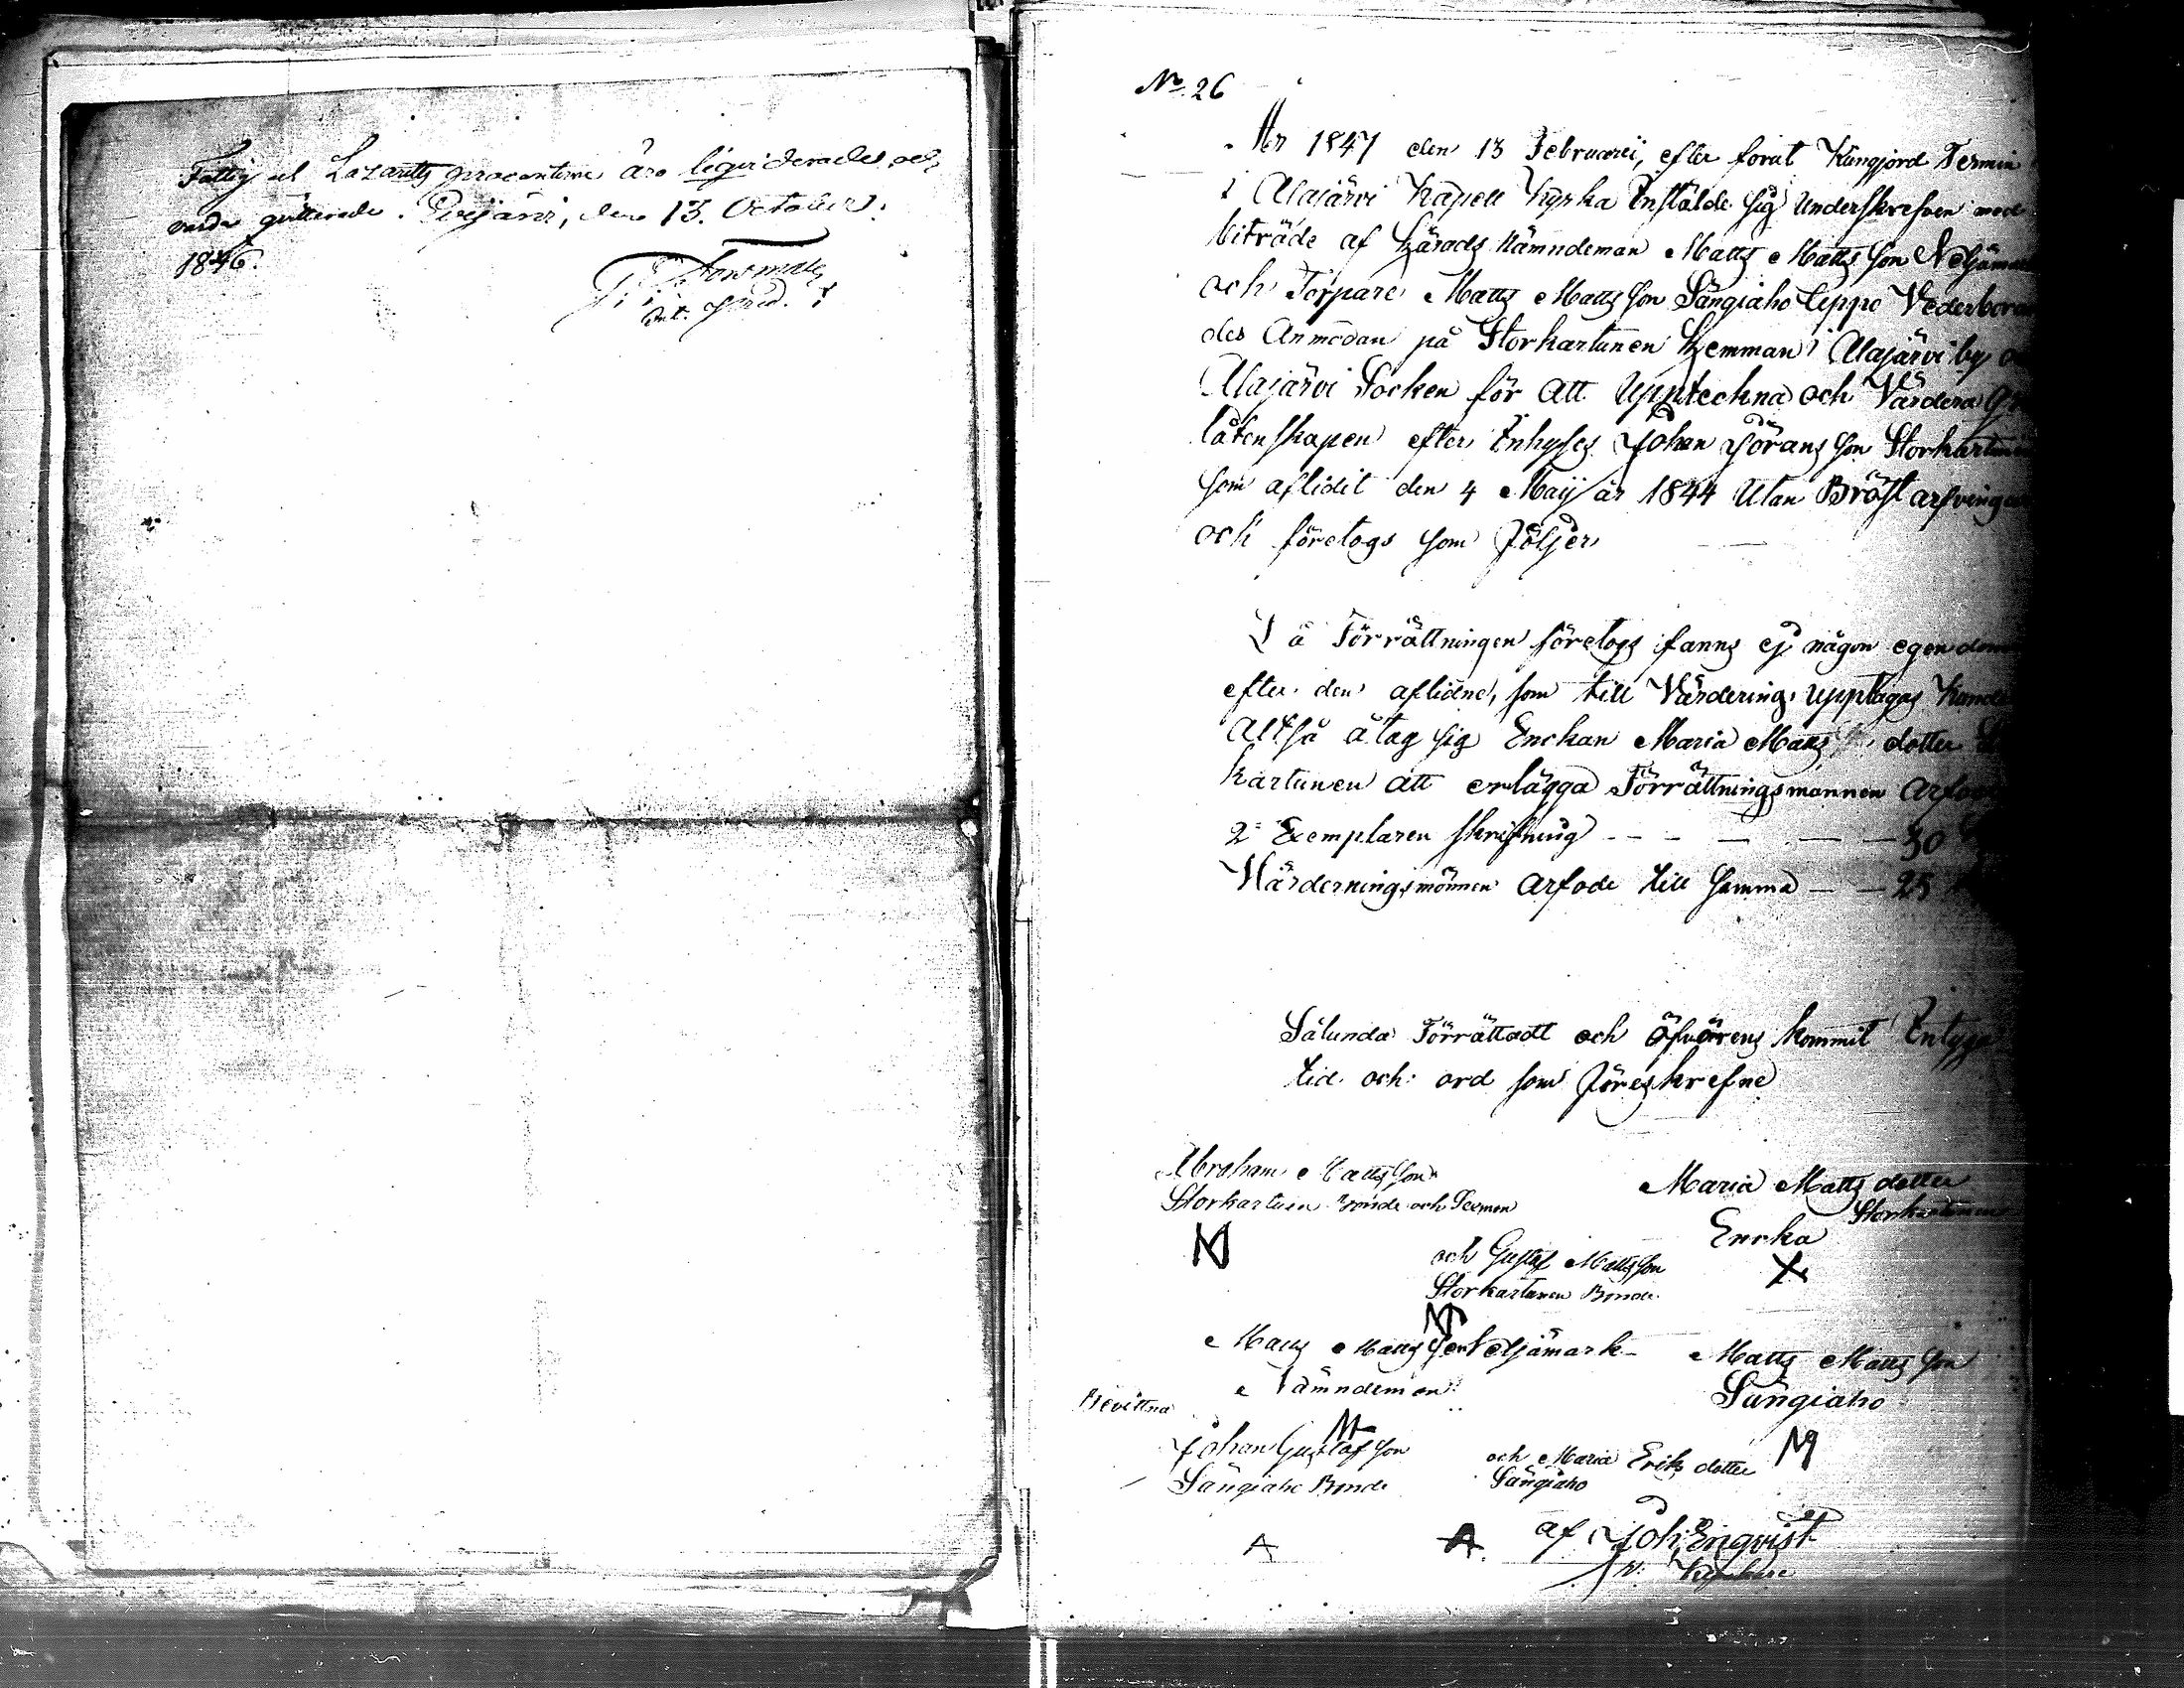 Fattig ul Lazaretts procenterne äro liqviderade och
varda quitterade. Evijärvi, den 13. October
1846.
No. 26
År 1847 den 13 Februarii, efter förut Kungjord Termin
i Alajärvi Kapell Kyrka Instälde sig Underskrefven med
biträde af Härads Nämndeman Matts Matts son Neljämark
och Torpare Matts Matts son Sängiaho uppå Vederböran
des Anmodan på Storkartunen Hemman i Alajärvi by
Alajärvi Socken för Att Upptechna och Värdera
låtenskapen efter Inhyses Johan Jörans son Storkartunen
som aflidit den 4 Maij år 1844 Utan Bröst arfvingar
och företogs som följer
Då Förrättningen företogs fanns ej någon egendom
efter den aflidne, som till Värdering upptagas Kunde
Altså åtag sig Enckan Maria Matts dotter
kartunen att erlägga Förrättningsmannen Arfode
2 Exemplaren skrifning - - - - - 30
Värderningsmännen Arfode till samma - - 25
Sålunda Förrättadt och Öfverens kommit Intyga
tid och ord som föreskrefne
Abraham Matts son
Storkartunen Bonde och
Maria Matts dotter
Storkartunen
Encka
och Gustaf Matts son
Storkartunen Bonde
Matts Matts son Neljämark
Nämndeman
Matts Matts son
Sängiaho
Bevittna
Johan Gustaf son
Sängiaho Bonde
och Maria Eriks dotter
Sängiaho
af Joh: Enqvist